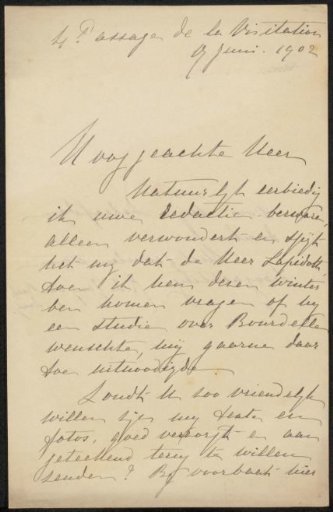 4 Passage de la Visitation
9 Juni. 1902
Hooggeachte Heer
Natuurlijk eerbiedig
ik uwe redactie bezwaren,
alleen verwondert en spijt
het mij dat de Heer Lapidoth
toen ik hem dezen winter
ben komen vragen of hij
een studie over Bourdelle
wenschte, mij gaarne daar
toe uitnoodigde.
Zoudt U zoo vriendelijk
willen zijn mij tekst en
fotos, goed verzorgd en aan
geteekend terug te willen
zenden? Bij voorbaat hier